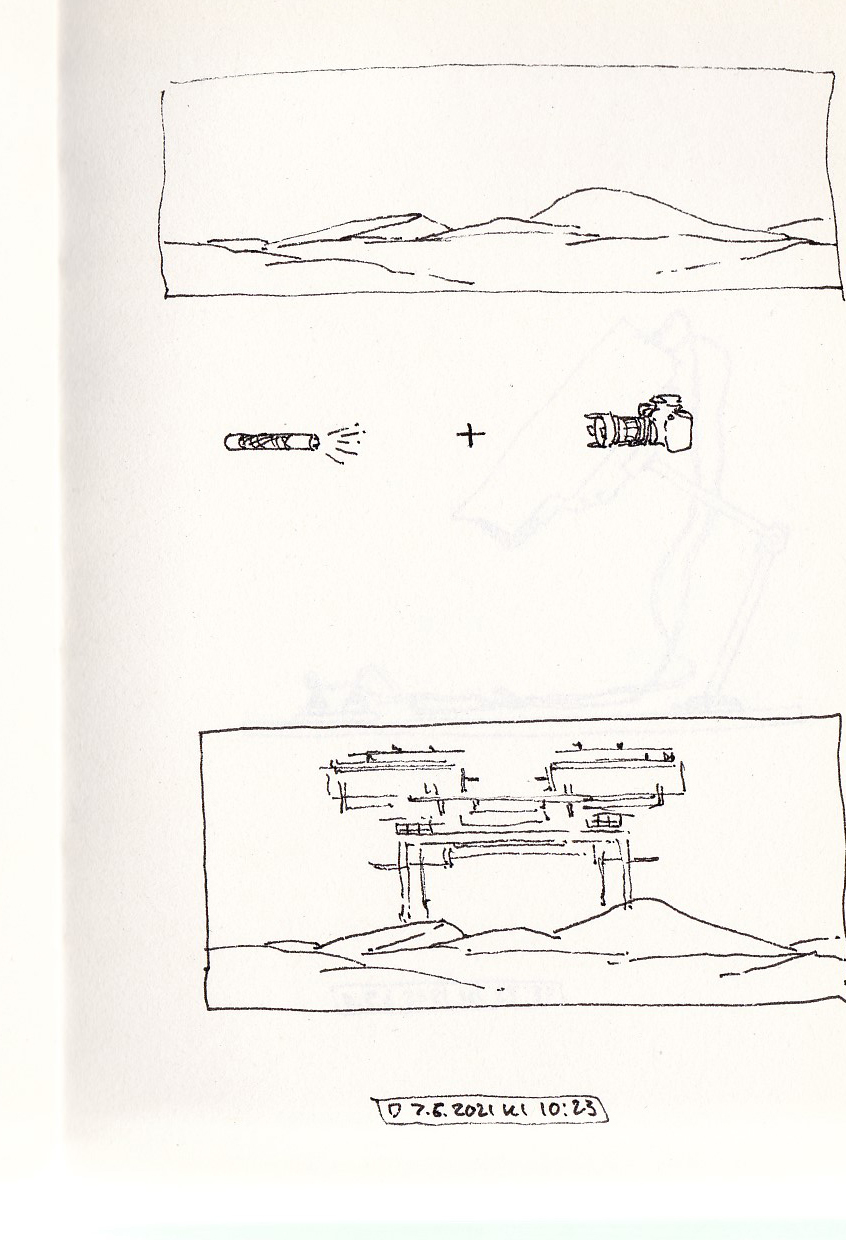 +
D 7.6.2021 kl 10:23